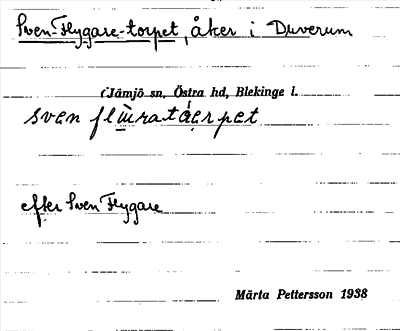 Sven-Flygare-torpet, åker i Duverum
(Jämjö sn, Östra hd, Blekinge l.
efter Sven Flygare
Märta Pettersson 1938